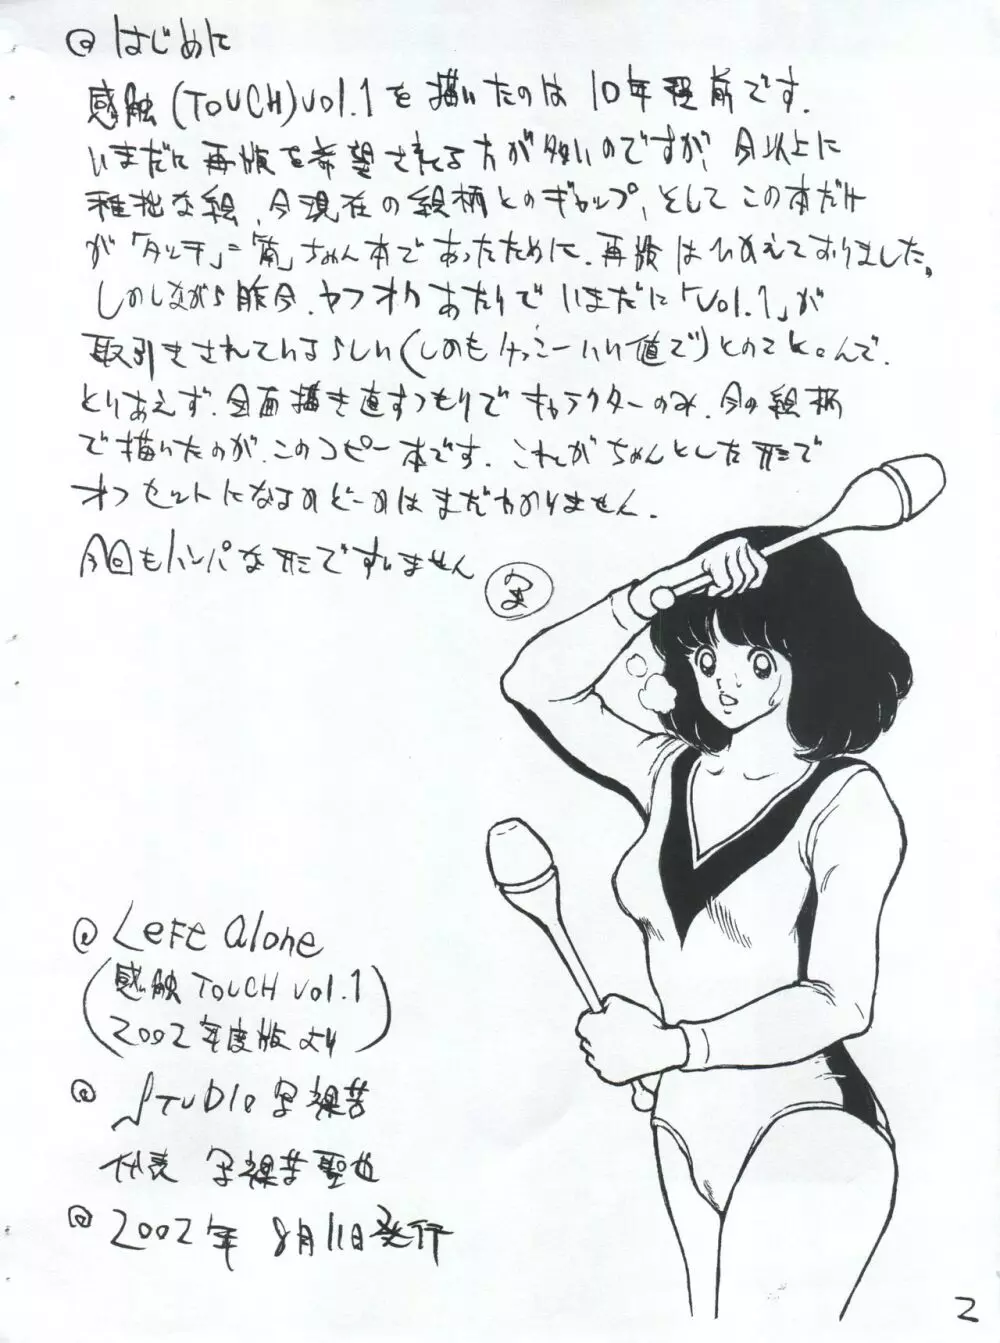 @ はじめに
感触(TOUCH)vol.1を描いたのは10年程前です.
いまだに再販を希望される方が多いのですが、今以上に
稚拙な絵、今現在の絵柄とのギャップ、そしてこの本だけ
が「タッチ」=「南」ちゃん本であったために、再販はひかえておりました。
しかしながら昨今、ヤフオクあたりでいまだに「vol.1」が
取引きされているらしい(しかもけっこーいい値で)とのことなんで、
とりあえず、全面描き直すつもりでキャラクターのみ、今の絵柄
で描いたのが、このコピー本です. これがちゃんとした形で
オフセットになるかどーかはまだわかりません.
今回もハンパな形ですいません
@ Left Alone
(感触 TOUCH vol.1
2002年度版より)
@ STUDIO 写裸苦
代表 写裸苦聖也
@ 2002年 8月11日発行
2